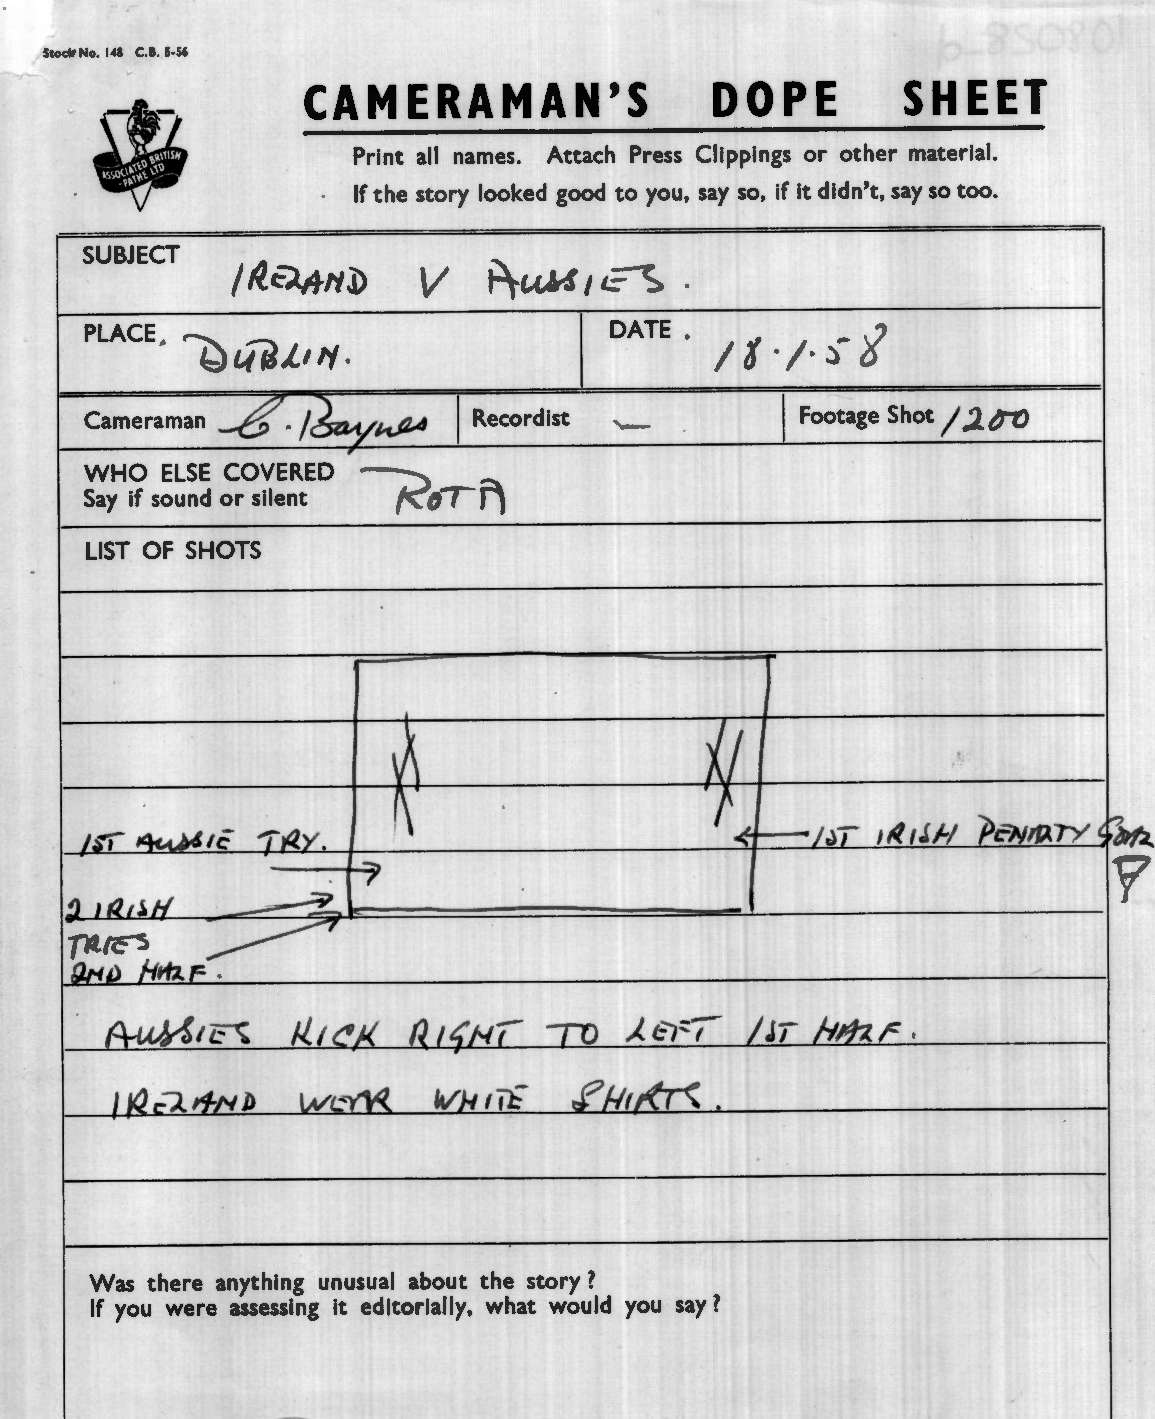 Stock No. 148 C.B. 5-56
CAMERAMAN'S DOPE SHEET
ASSOCIATED BRITISH
-PATHE LTD
Print all names. Attach Press Clippings or other material.
If the story looked good to you, say so, if it didn't, say so too.
SUBJECT
IRELAND V AUSSIES.
PLACE DUBLIN.
DATE 18.1.58
Cameraman C. Baynes
Recordist —
Footage Shot 1200
WHO ELSE COVERED
Say if sound or silent
ROTA
LIST OF SHOTS
1ST AUSSIE TRY.
1ST IRISH PENALTY GOAL
2 IRISH
TRIES
2ND HALF.
AUSSIES KICK RIGHT TO LEFT 1ST HALF.
IRELAND WEAR WHITE SHIRTS.
Was there anything unusual about the story?
If you were assessing it editorially, what would you say?